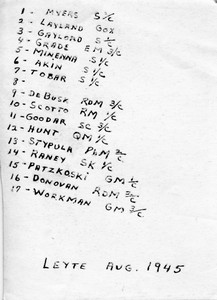 1 - MYERS S 1/C
2 - LAYLAND COX
3 - GAYLORD S 1/C
4 - GRADE EM 3/C
5 - MINENNA S 1/C
6 - AKIN S 1/C
7 - TOBAR S 1/C
8 -
9 - DE BUSK RDM 3/C
10 - SCOTTO RM 1/C
11 - GOODAR SC 3/C
12 - HUNT QM 1/C
13 - STYPULA PhM 2/C
14 - RANEY SK 1/C
15 - PATZKOSKI GM 1/C
16 - DONOVAN RDM 3/C
17 - WORKMAN GM 3/C
LEYTE AUG. 1945